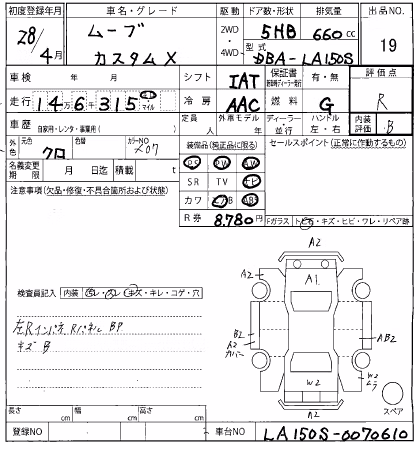 初度登録年月 車名・グレード 駆動 ドア数・形状 排気量 出品NO
28/4月 ムーブ カスタムX 2WD・4WD 5HB 660cc 19
型式 DBA-LA150S
車検 年 月 シフト IAT 保証書 有・無 評価点 R
走行 14万6千315 キロ・マイル 冷房 AAC 燃料 G 内装評価 B
車歴 自家用・レンタ・事業用( ) 定員 人 外車モデル 年 ディーラー・並行 ハンドル 左・右
外色 元色 クロ 色替 カラーNO X07 装備品(純正品に限る) セールスポイント(正常に作動するもの)
名義変更期限 月 日迄 積載 t
PS PW AW
注意事項(欠品・修復・不具合箇所および状態) SR TV ナビ
カワ エアB ABS
R券 8.780円 Fガラス トビ石・キズ・ヒビ・ワレ・リペア跡
A2
A1
検査員記入 内装 ヨレ・スレ・キズ・キレ・コゲ・穴
左Rインパネ RパネルBP
キズB
B2
A2
カバー
AB2
W2
W2
ムラ
スペア
A2
長さ cm 幅 cm 高さ cm
登録NO 車台NO LA150S-0070610